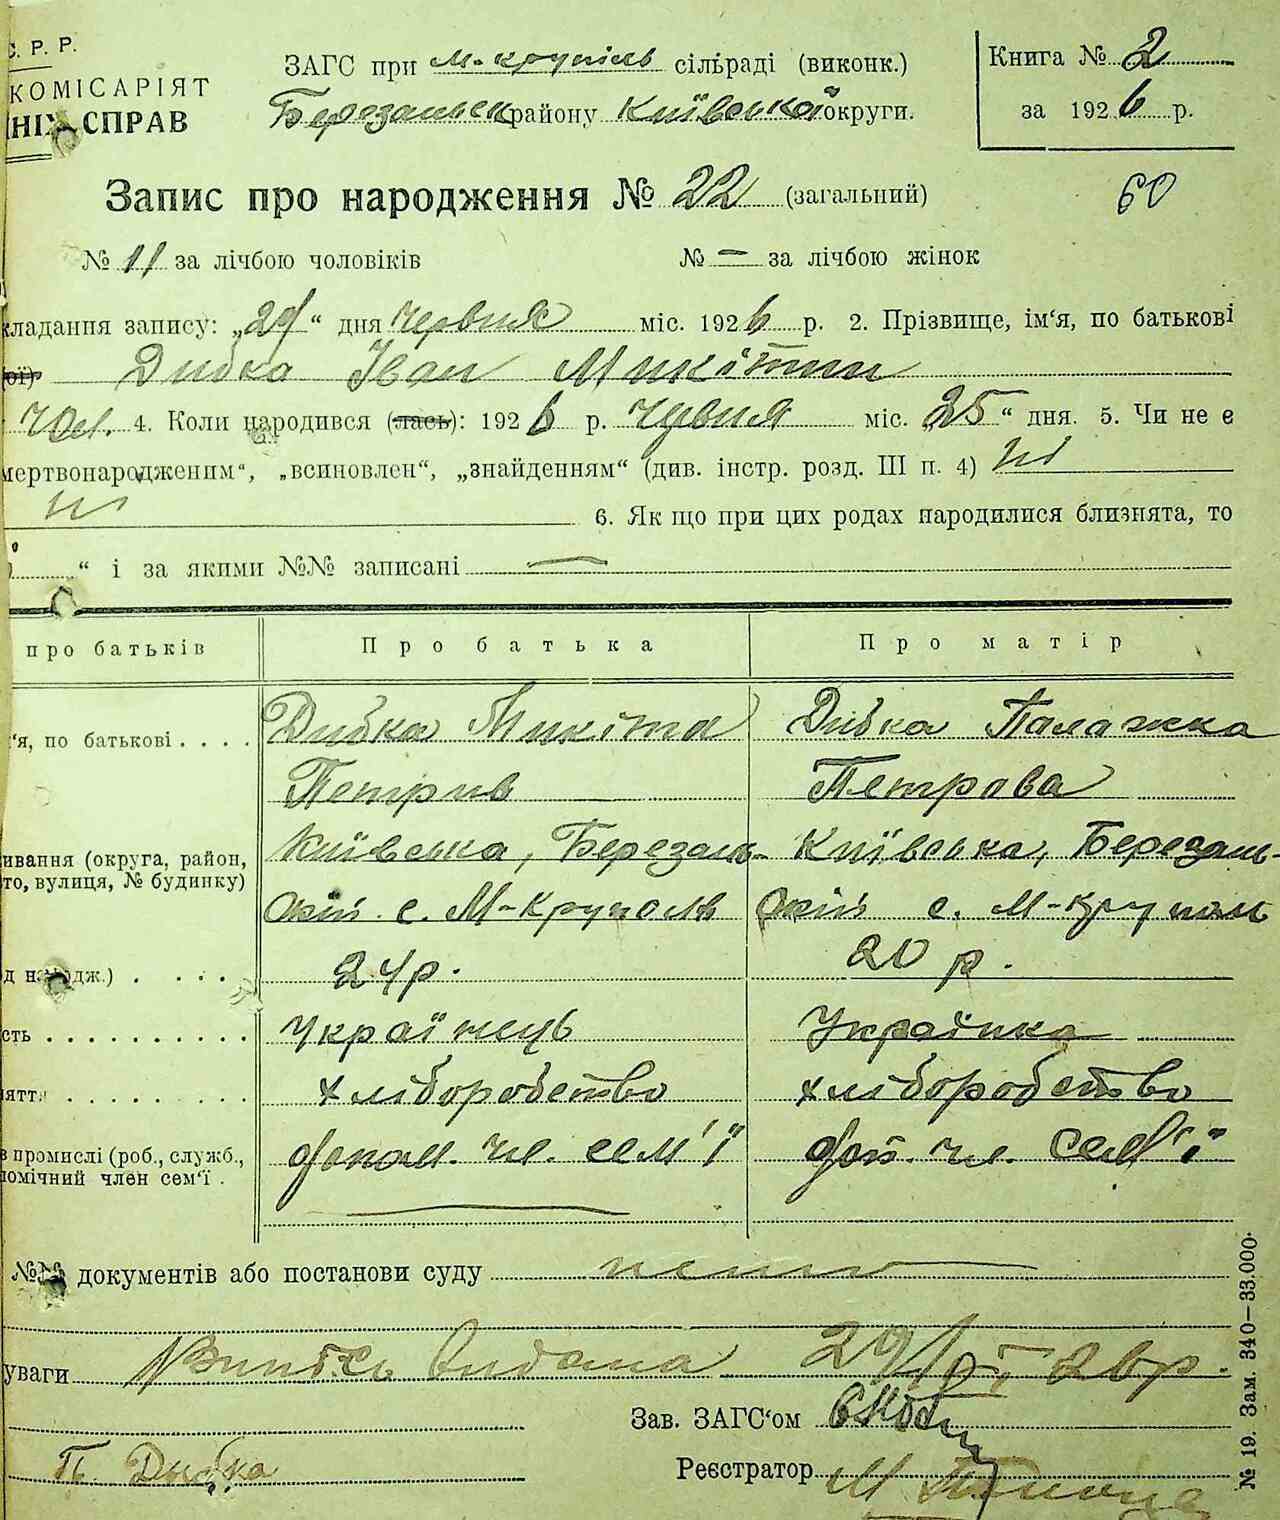 С. Р. Р.
КОМІСАРІЯТ
НІХ СПРАВ
ЗАГС при м-крупіль сільраді (виконк.)
Березанськ району Київської округи.
Книга № 2
за 1926 р.
Запис про народження № 22 (загальний)
60
№ 11 за лічбою чоловіків № — за лічбою жінок
кладання запису: „29“ дня червня міс. 1926 р. 2. Прізвище, ім‘я, по батькові
ої) Дибка Іван Микітин
чол. 4. Коли народився (лась): 1926 р. червня міс. „25“ дня. 5. Чи не є
мертвонародженим“, „всиновлен“, „знайденням“ (див. інстр. розд. III п. 4) ні
ні 6. Як що при цих родах народилися близнята, то
“ і за якими №№ записані —
про батьків Про батька Про матір
‘я, по батькові . . . . Дибка Микіта Дибка Палажка
Петрив Петрова
ивання (округа, район, Київська, Березань- Київська, Березань-
то, вулиця, № будинку)
ский с. М-Круполь ский с. М-Круполь
д народж.) . . . . 24р. 20 р.
сть . . . . . . . . . . Українець Українка
яття . . . . . . . . . хліборобство хліборобство
в промислі (роб., служб., допом. чл. сем'ї доп. чл. сем'ї
омічний член сем‘ї .
№№ документів або постанови суду нема
уваги Випись видана 29/VI 26р.
Зав. ЗАГС‘ом
П. Дыбка
Реєстратор М
№ 19. Зам. 340—33.000.